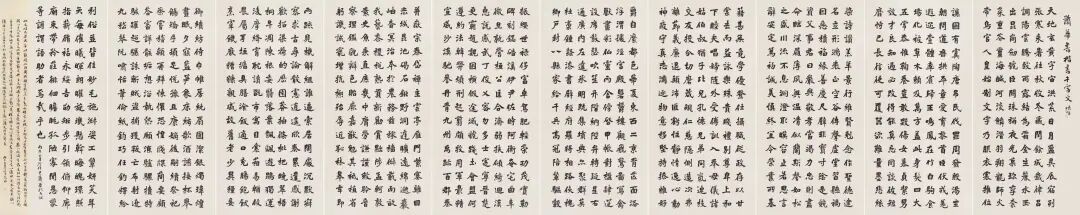 楷書千字文
天地玄黄宇宙洪荒日月盈昃辰宿列
張寒来暑往秋收冬藏閏餘成歲律呂
調陽雲騰致雨露結為霜金生麗水玉
出崑岡劍號巨闕珠稱夜光果珍李柰
菜重芥薑海鹹河淡鱗潛羽翔龍師火
帝鳥官人皇始制文字乃服衣裳推位
讓國有虞陶唐弔民伐罪周發殷湯坐
朝問道垂拱平章愛育黎首臣伏戎羌
遐邇壹體率賓歸王鳴鳳在竹白駒食
場化被草木賴及萬方蓋此身髮四大
五常恭惟鞠養豈敢毀傷女慕貞潔男
效才良知過必改得能莫忘罔談彼短
靡恃己長信使可覆器欲難量墨悲絲
染詩讚羔羊景行維賢克念作聖德建
名立形端表正空谷傳聲虛堂習聽禍
因惡積福緣善慶尺璧非寶寸陰是競
資父事君曰嚴與敬孝當竭力忠則盡
命臨深履薄夙興溫凊似蘭斯馨如松
之盛川流不息淵澄取映容止若思言
辭安定篤初誠美慎終宜令榮業所基
籍甚無竟學優登仕攝職從政存以甘
棠去而益詠樂殊貴賤禮別尊卑上和
下睦夫唱婦隨外受傅訓入奉母儀諸
姑伯叔猶子比兒孔懷兄弟同氣連枝
交友投分切磨箴規仁慈隱惻造次弗
離節義廉退顛沛匪虧性靜情逸心動
神疲守真志滿逐物意移堅持雅操好
爵自縻都邑華夏東西二京背邙面洛
浮渭據涇宮殿盤鬱樓觀飛驚圖寫禽
獸畫彩仙靈丙舍傍啟甲帳對楹肆筵
設席鼓瑟吹笙升階納陛弁轉疑星右
通廣內左達承明既集墳典亦聚群英
杜稿鍾隸漆書壁經府羅將相路俠槐
卿戶封八縣家給千兵高冠陪輦驅轂
振纓世祿侈富車駕肥輕策功茂實勒
碑刻銘磻溪伊尹佐時阿衡奄宅曲阜
微旦孰營桓公匡合濟弱扶傾綺迴漢
惠說感武丁俊乂密勿多士寔寧晉楚
更霸趙魏困橫假途滅虢踐土會盟何
遵約法韓弊煩刑起翦頗牧用軍最精
宣威沙漠馳譽丹青九州禹跡百郡秦
并嶽宗泰岱禪主云亭雁門紫塞雞田
赤城昆池碣石鉅野洞庭曠遠綿邈巖
岫杳冥治本於農務茲稼穡俶載南畝
我藝黍稷稅熟貢新勸賞黜陟孟軻敦
素史魚秉直庶幾中庸勞謙謹敕聆音
察理鑒貌辨色貽厥嘉猷勉其祗植省
躬譏誡寵增抗極殆辱近恥林皋幸即
兩疏見機解組誰逼索居閒處沉默寂
寥求古尋論散慮逍遙欣奏累遣慼謝
歡招渠荷的歷園莽抽條枇杷晚翠梧
桐早凋陳根委翳落葉飄颻游鵾獨運
凌摩絳霄耽讀翫市寓目囊箱易輶攸
畏屬耳垣牆具膳餐飯適口充腸飽飫
烹宰飢厭糟糠親戚故舊老少異糧妾
御績紡侍巾帷房紈扇圓潔銀燭煒煌
晝眠夕寐藍筍象床弦歌酒讌接杯舉
觴矯手頓足悅豫且康嫡後嗣續祭祀
烝嘗稽顙再拜悚懼恐惶箋牒簡要顧
答審詳骸垢想浴執熱願涼驢騾犢特
駭躍超驤誅斬賊盜捕獲叛亡布射僚
丸嵇琴阮嘯恬筆倫紙鈞巧任釣釋紛
利俗並皆佳妙毛施淑姿工顰妍笑年
矢每催曦暉朗曜璇璣懸斡晦魄環照
指薪修祜永綏吉劭矩步引領俯仰廊
廟束帶矜莊徘徊瞻眺孤陋寡聞愚蒙
等誚謂語助者焉哉乎也